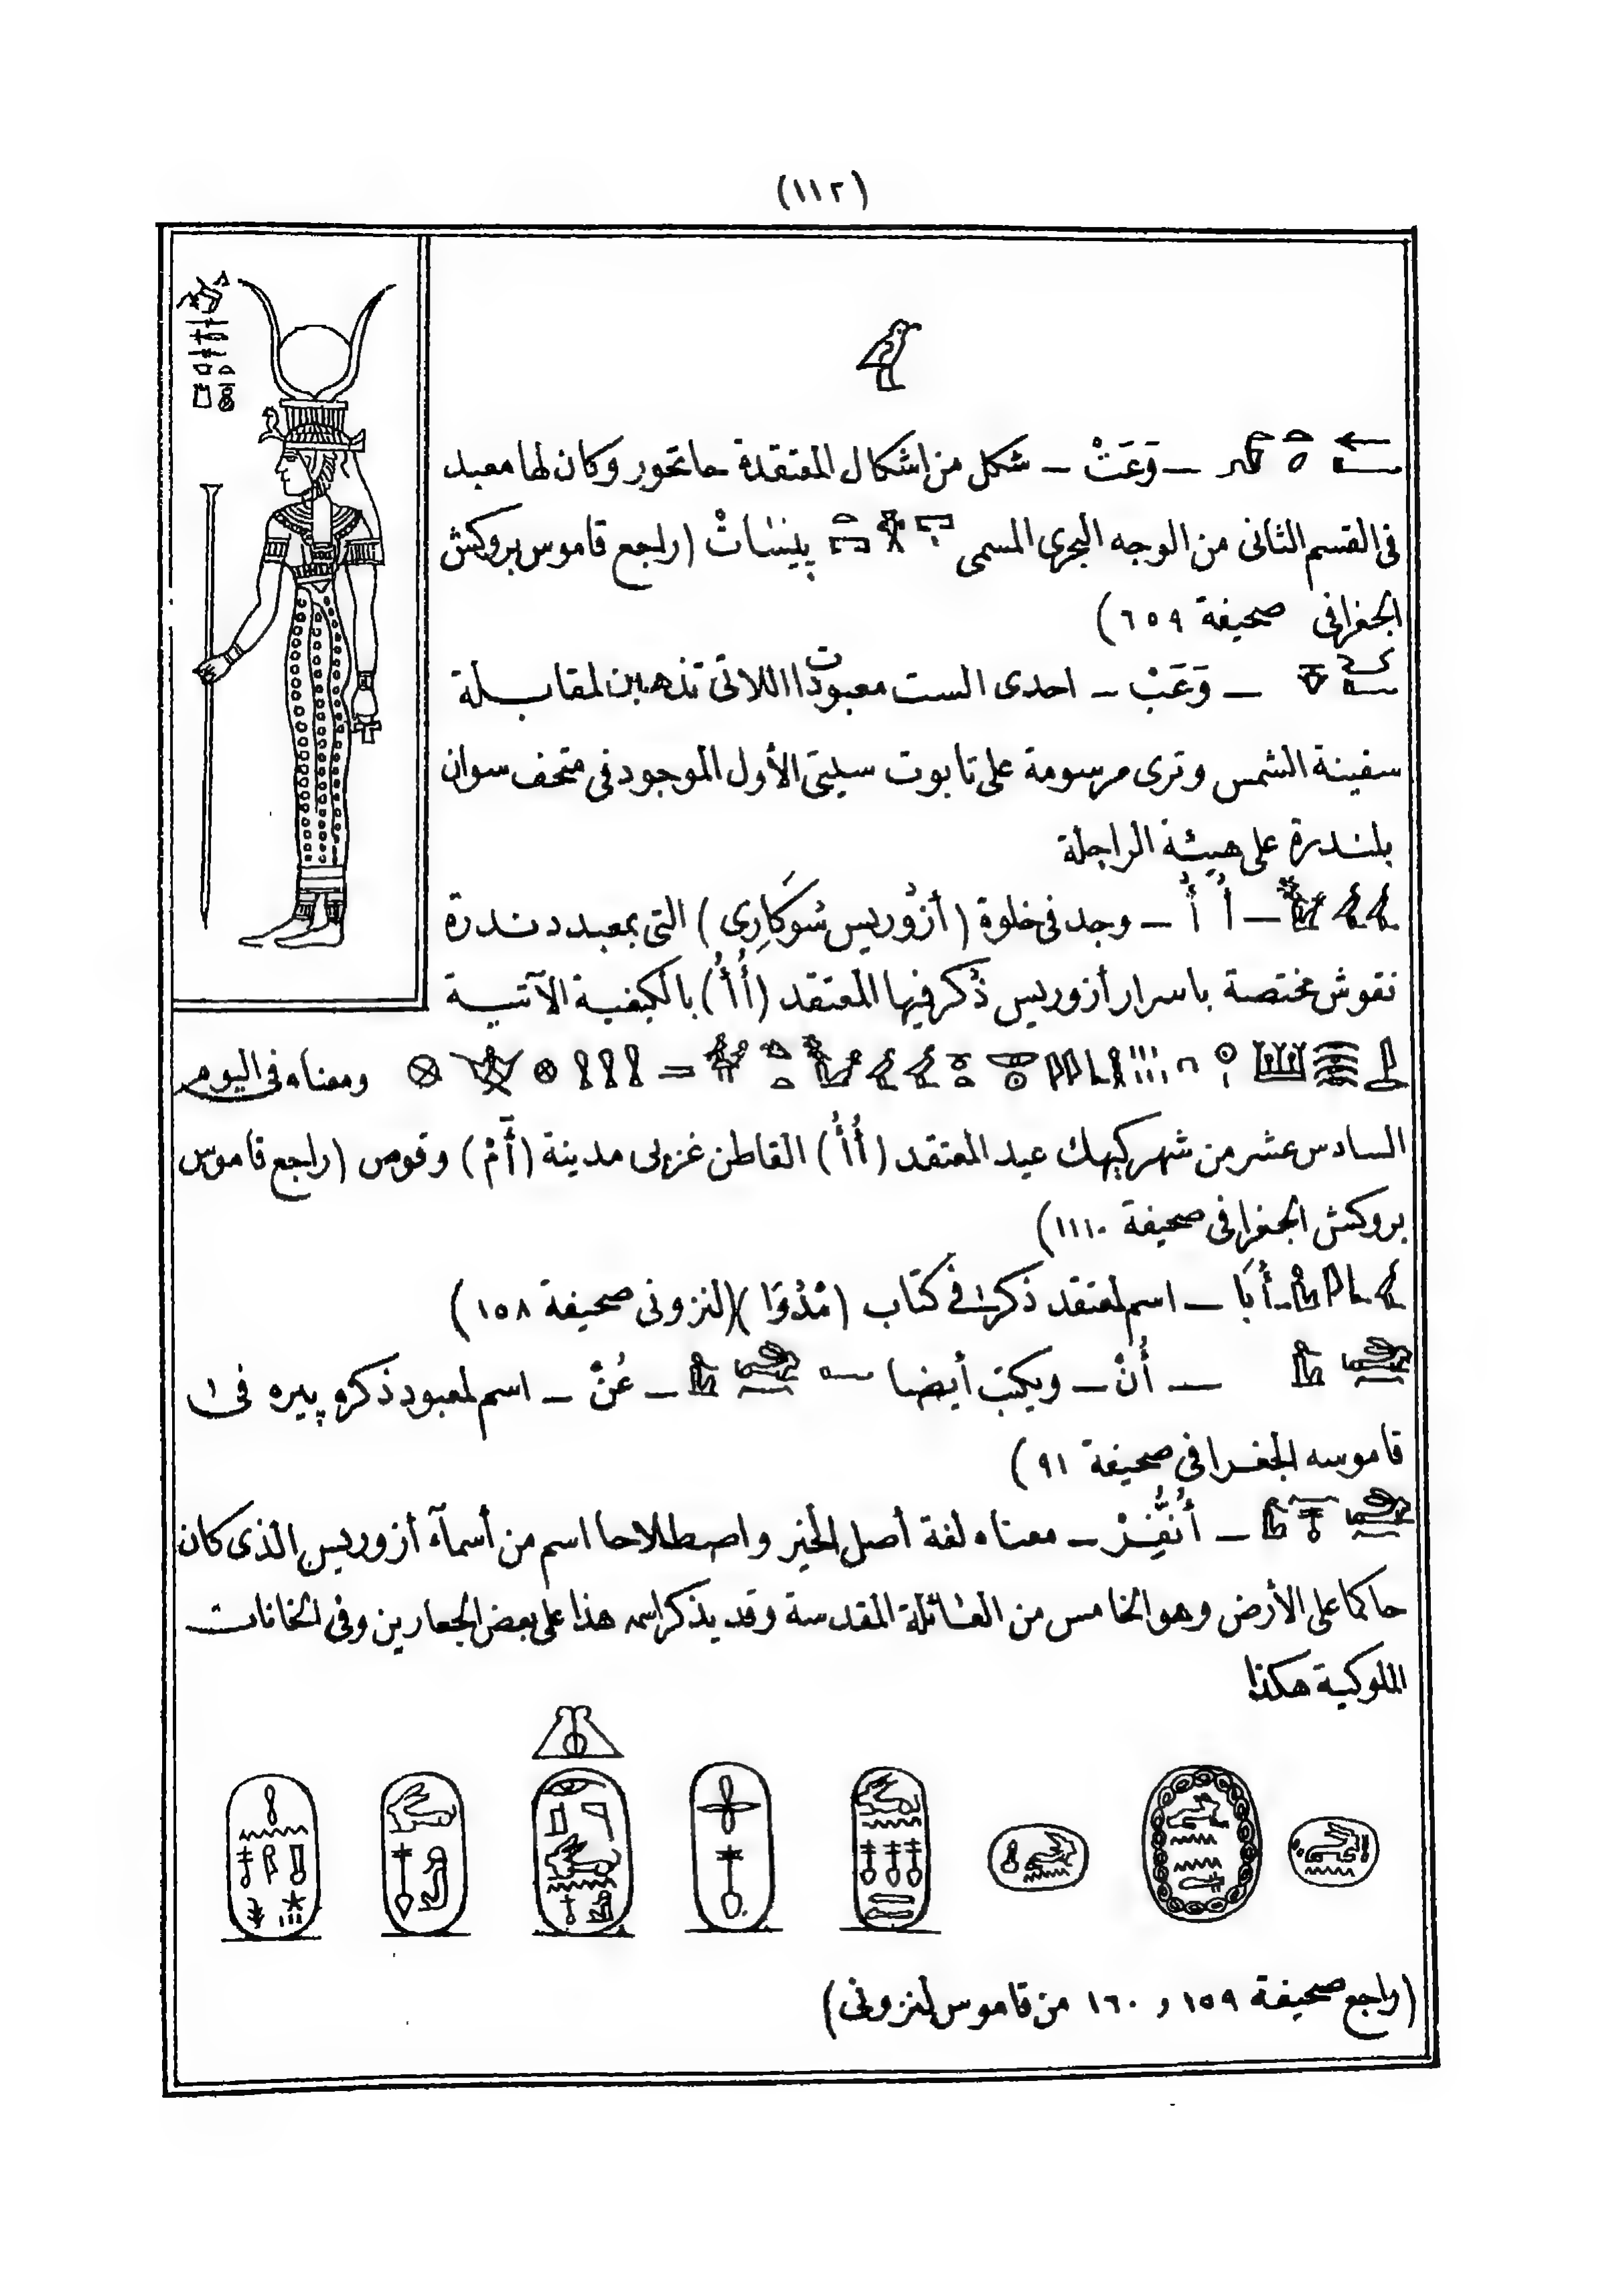 (١١٢)
— وَعَتْ — شكل من اشكال المعتقدة حاتحور وكان لها معبد
فى القسم الثانى من الوجه البحرى المسمى پنِسَاتْ (راجع قاموس بروكش
الجغرافى صحيفة ٦٥٩)
— وَعَبْ — احدى الست معبودات اللاتى تذهبن لمقابلة
سفينة الشمس وترى مرسومة على تابوت سيتى الأول الموجود فى متحف سوان
بلندرة على هيئة الراجلة
— أُ أُ — وجد فى خلوة (أزوريس سُوكَارِى) التى بمعبد دندرة
نقوش مختصة باسرار أزوريس ذُكر فيها المعتقد (أُأُ) بالكيفية الآتية
ومعناه فى اليوم
السادس عشر من شهر كيهك عيد المعتقد (أُأُ) القاطن غربى مدينة (أَمْ) وقوص (راجع قاموس
بروكش الجغرافى صحيفة ١١١٠)
أُبَا — اسم لمعتقد ذكر فى كتاب (مْدُوَا) (لنزونى صحيفة ١٥٨)
— أُنْ — ويكتب أيضا — عُنْ — اسم لمعبود ذكره پيره فى
قاموسه الجغرافى صحيفة ٩١)
— أُنْنُفِرْ — معناه لغة أصل الخير واصطلاحا اسم من أسمآء أزوريس الذى كان
حاكما على الأرض وهو الخامس من العائلة المقدسة وقد يذكر اسمه هذا على بعض الجعارين وفى الخانات
الملوكية هكذا
(راجع صحيفة ١٥٩ و ١٦٠ من قاموس لنزونى)